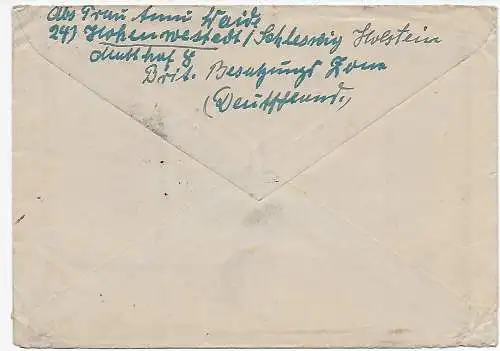 Abs Frau Anni Waide
24) Hohenwestedt / Schleswig Holstein
Brit. Besatzungs Zone
(Deutschland.)